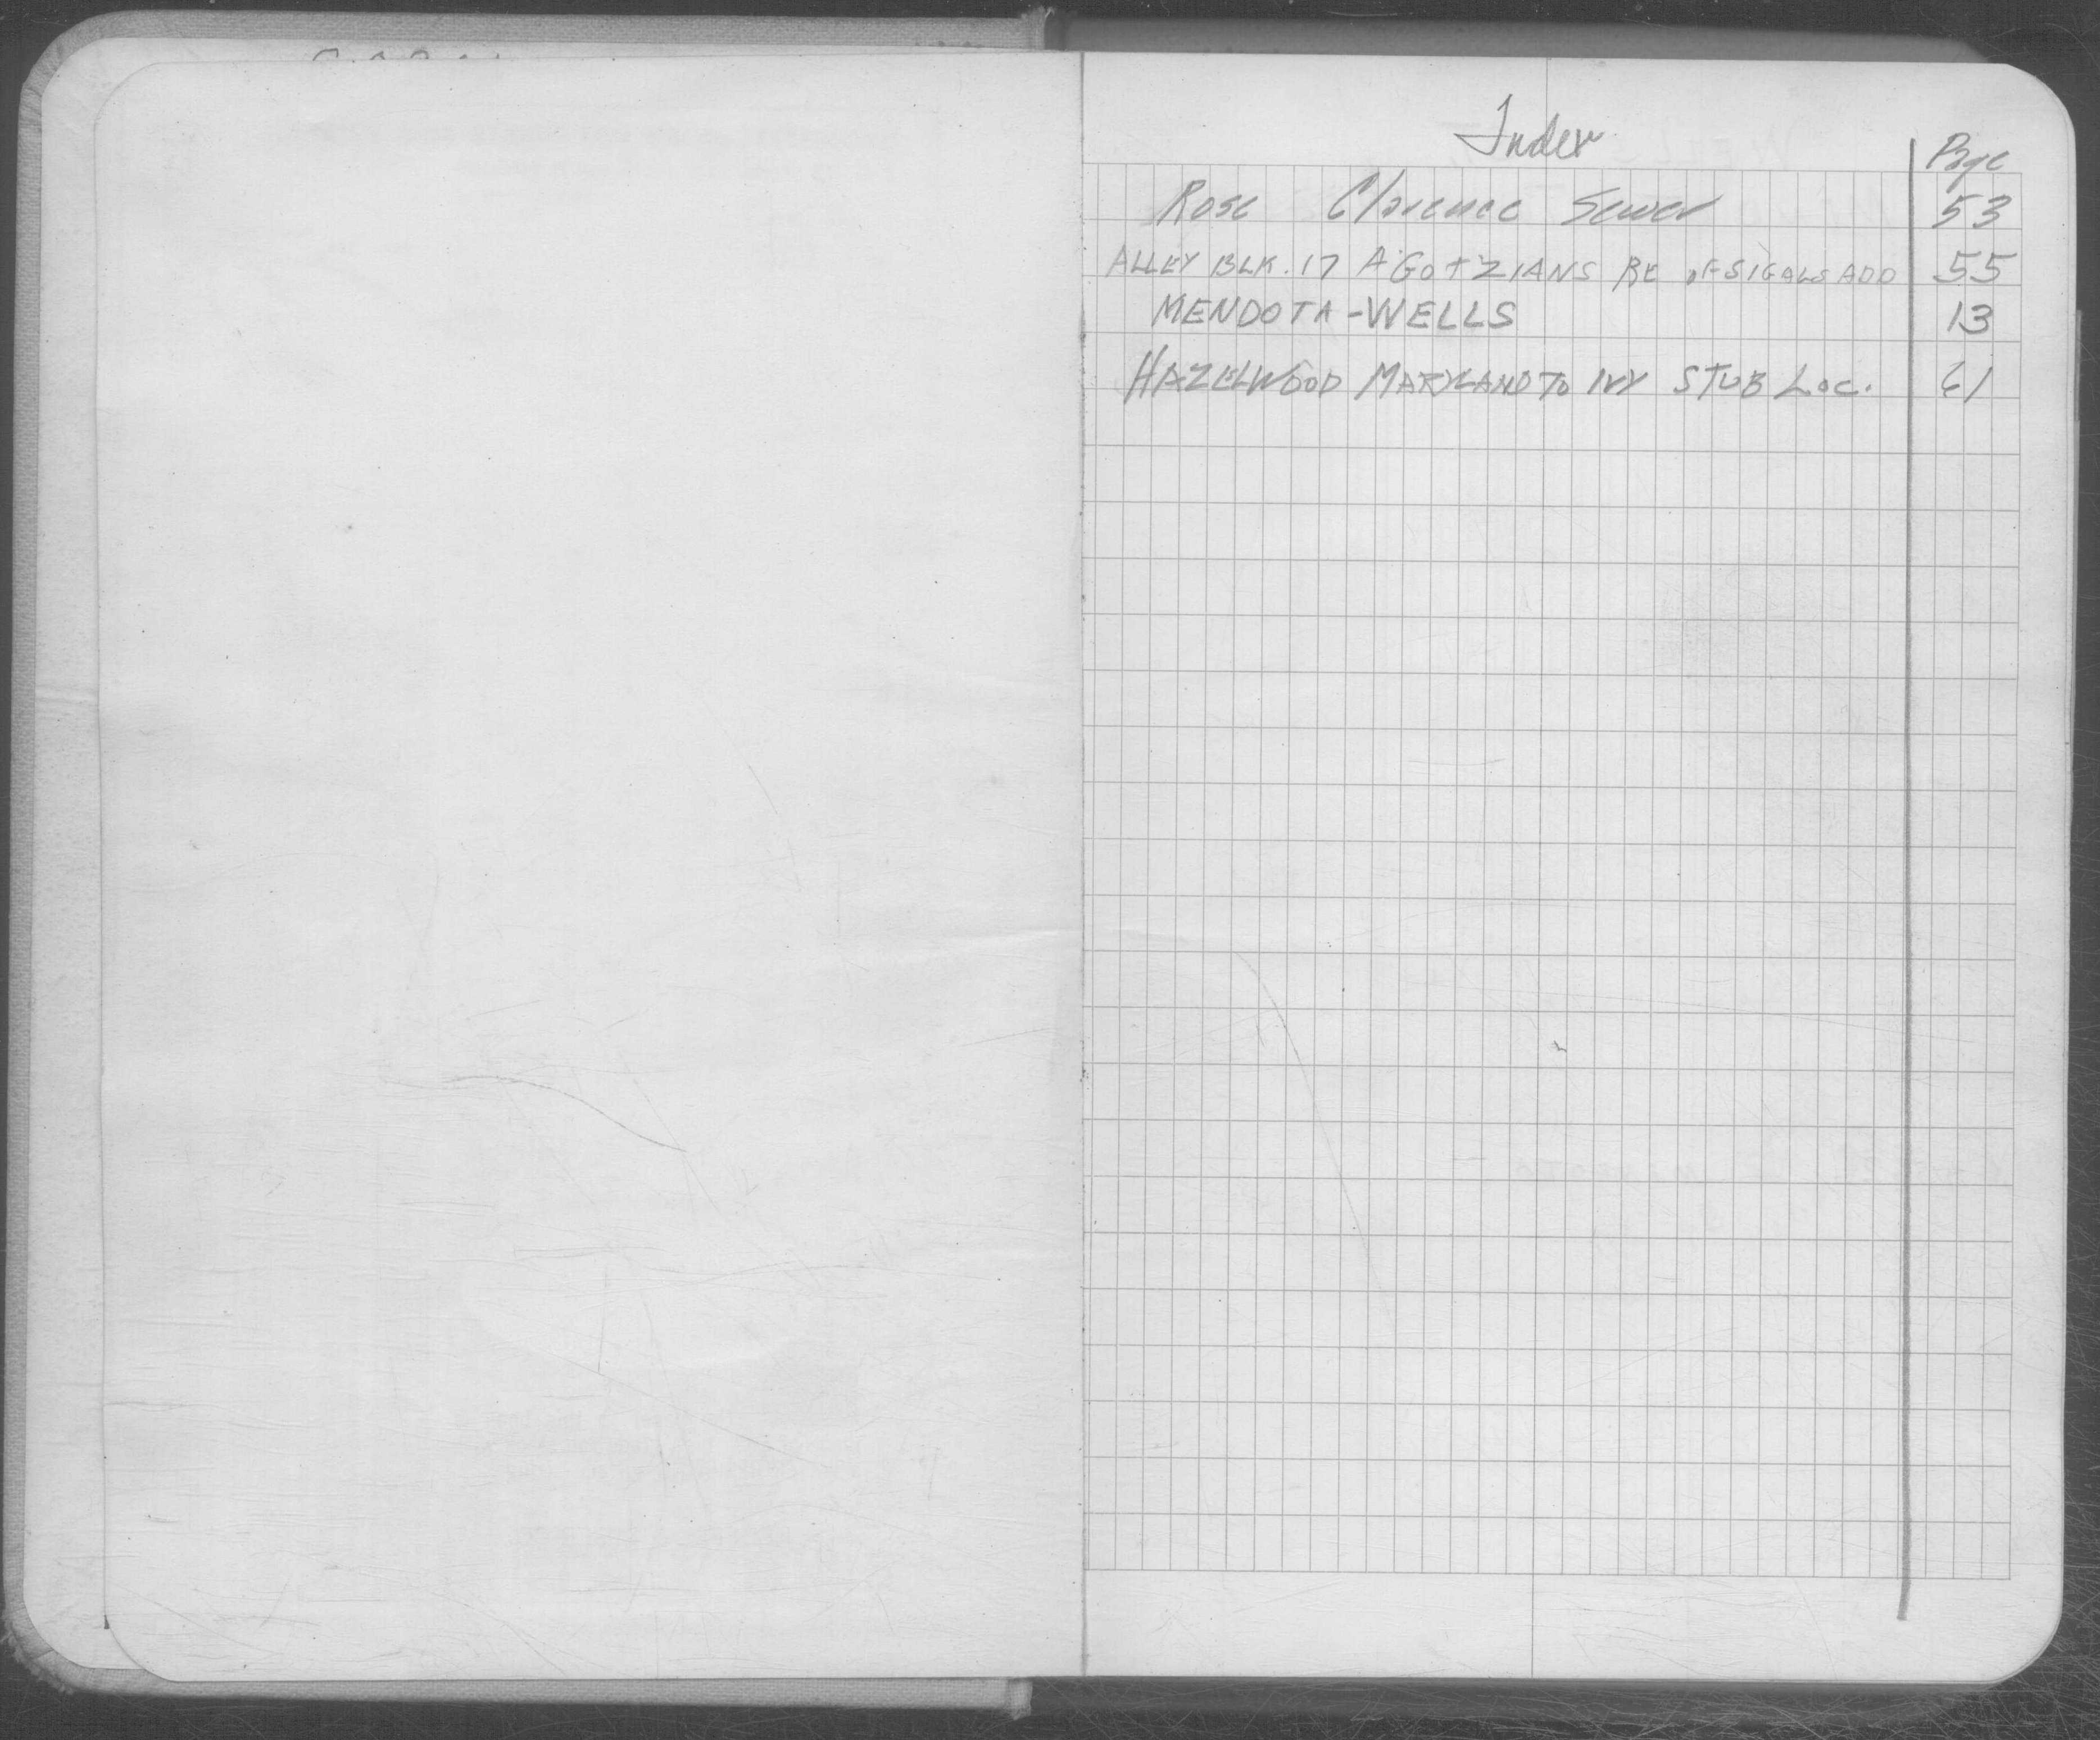 Index
Page
Rose Clarence Sewer 53
ALLEY BLK. 17 A GOTZIANS RE OF SIGALS ADD 55
MENDOTA-WELLS 13
HAZELWOOD MARYLAND TO IVY STUB LOC. 61